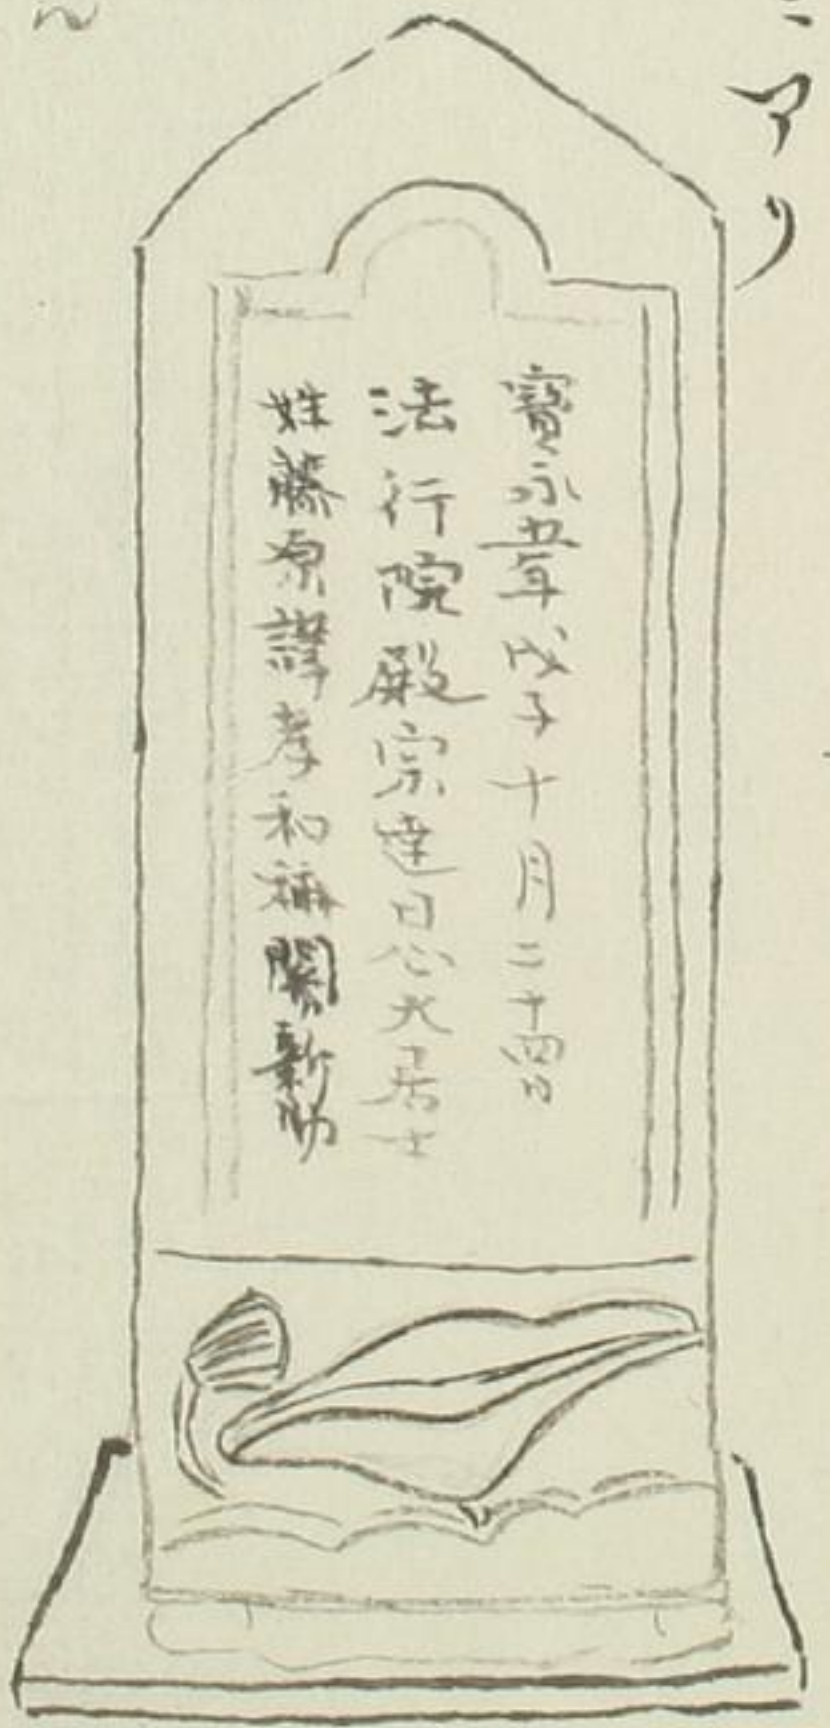 ニアリ
寳永五年戊子十月二十四日
法行院殿宗達日心大居士
姓藤原諱孝和稱關新助